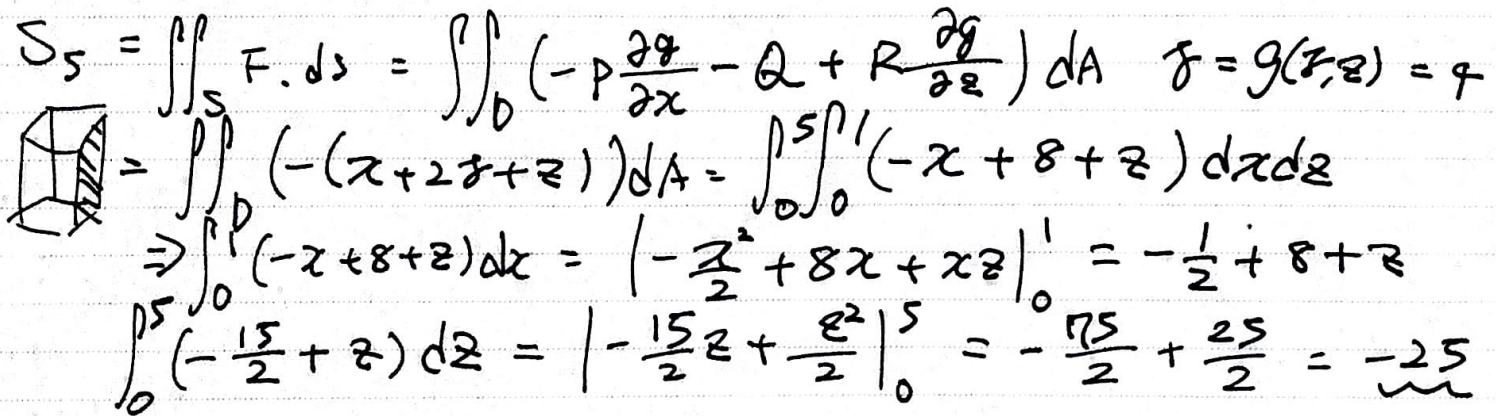 S₅ = ∬_S F. ds = ∬_D (-P ∂g/∂x - Q + R ∂g/∂z) dA y = g(x,z) = 4
= ∬_D (-(x+2y+z))dA = ∫₀⁵∫₀¹ (-x + 8 + z) dxdz
⇒ ∫₀¹ (-x + 8 + z) dx = |-x²/2 + 8x + xz|₀¹ = -1/2 + 8 + z
∫₀⁵ (-15/2 + z) dz = |-15/2 z + z²/2|₀⁵ = -75/2 + 25/2 = -25